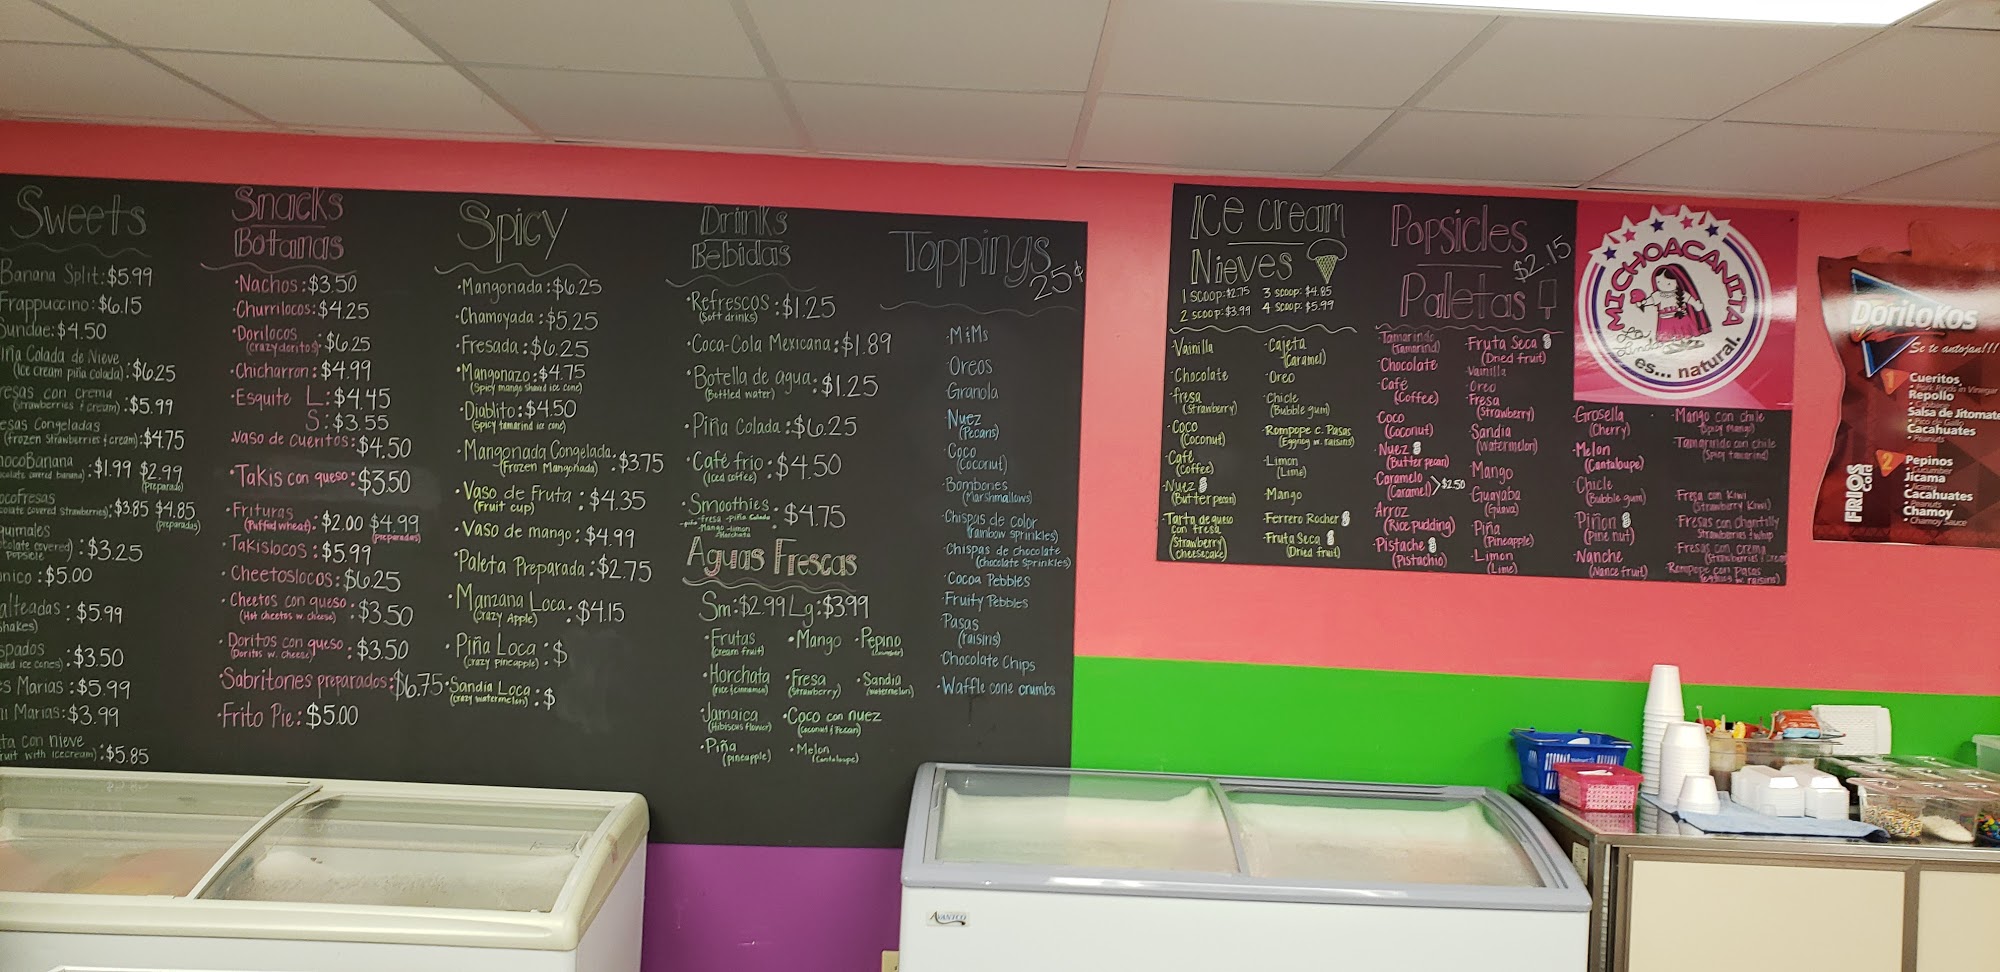 Sweets
Banana Split: $5.99
Frappuccino: $6.15
Sundae: $4.50
Piña Colada de Nieve
(Ice cream piña colada): $6.25
resas con crema
(strawberries & cream): $5.99
esas Congeladas
(frozen strawberries & cream): $4.75
hocoBanana
colate covered banana): $1.99 $2.99
(preparado)
ocoFresas
colate covered strawberries): $3.85 $4.85
(preparadas)
quimales
colate covered)
popsicle : $3.25
nico: $5.00
alteadas
hakes) : $5.99
spados
ved ice cones) : $3.50
s Marias: $5.99
ni Marias: $3.99
ta con nieve
ruit with icecream): $5.85
Snacks
Botanas
• Nachos: $3.50
• Churrilocos: $4.25
• Dorilocos
(crazy doritos): $6.25
• Chicharron: $4.99
• Esquite L: $4.45
S: $3.55
• Vaso de cueritos: $4.50
• Takis con queso: $3.50
• Frituras
(Puffed wheat): $2.00 $4.99
(preparadas)
• Takislocos: $5.99
• Cheetoslocos: $6.25
• Cheetos con queso
(Hot cheetos w. cheese) : $3.50
• Doritos con queso
(Doritos w. cheese) : $3.50
• Sabritones preparados: $6.75
• Frito Pie: $5.00
Spicy
• Mangonada: $6.25
• Chamoyada: $5.25
• Fresada: $6.25
• Mangonazo: $4.75
(Spicy mango shaved ice cone)
• Diablito: $4.50
(Spicy tamarind ice cone)
• Mangonada Congelada
(Frozen Mangonada) : $3.75
• Vaso de Fruta: $4.35
(Fruit cup)
• Vaso de mango: $4.99
• Paleta Preparada: $2.75
• Manzana Loca: $4.15
(Crazy Apple)
• Piña Loca: $
(crazy pineapple)
• Sandia Loca: $
(crazy watermelon)
Drinks
Bebidas
• Refrescos: $1.25
(Soft drinks)
• Coca-Cola Mexicana: $1.89
• Botella de agua: $1.25
(Bottled water)
• Piña Colada: $6.25
• Café frio: $4.50
(Iced coffee)
• Smoothies : $4.75
-fresa -Piña Colada
-Mango -limon
-Horchata
Aguas Frescas
Sm: $2.99 Lg: $3.99
• Frutas
(cream fruit)
• Mango
• Pepino
(cucumber)
• Horchata
(rice & cinnamon)
• Fresa
(strawberry)
• Sandia
(watermelon)
• Jamaica
(Hibiscus flavor)
• Coco con nuez
(coconut & Pecan)
• Piña
(pineapple)
• Melon
(Cantaloupe)
Toppings
25¢
• M&Ms
• Oreos
• Granola
• Nuez
(Pecans)
• Coco
(coconut)
• Bombones
(Marshmallows)
• Chispas de color
(rainbow sprinkles)
• Chispas de chocolate
(chocolate sprinkles)
• Cocoa Pebbles
• Fruity Pebbles
• Pasas
(raisins)
• Chocolate Chips
• Waffle cone crumbs
Ice cream
Nieves
1 scoop: $2.75 3 scoop: $4.85
2 scoop: $3.99 4 scoop: $5.99
• Vainilla
• Chocolate
• fresa
(strawberry)
• Coco
(Coconut)
• Café
(Coffee)
• Nuez
(Butter pecan)
• Tarta de queso
con fresa
(Strawberry
cheesecake)
• Cajeta
(Caramel)
• Oreo
• Chicle
(Bubble gum)
• Rompope c. Pasas
(Eggnog w. raisins)
• Limon
(Lime)
• Mango
• Ferrero Rocher
• Fruta Seca
(Dried fruit)
Popsicles
Paletas
$2.15
• Tamarindo
(Tamarind)
• Chocolate
• Café
(Coffee)
• Coco
(Coconut)
• Nuez
(Butter pecan)
• Caramelo
(Caramel) >$2.50
• Arroz
(Rice pudding)
• Pistache
(Pistachio)
• Fruta Seca
(Dried fruit)
• Vainilla
• Oreo
• Fresa
(Strawberry)
• Sandia
(Watermelon)
• Mango
• Guayaba
(Guava)
• Piña
(Pineapple)
• Limon
(Lime)
• Grosella
(Cherry)
• Melon
(Cantaloupe)
• Chicle
(Bubble gum)
• Piñon
(Pine nut)
• Nanche
(Nance fruit)
• Mango con chile
(Spicy Mango)
• Tamarindo con chile
(Spicy tamarind)
• Fresa con Kiwi
(Strawberry Kiwi)
• Fresas con chantilly
Strawberries & whip
• Fresas con crema
(Strawberries & cream
• Rompope con pasas
(eggnog w. raisins)
MICHOACANITA
La Linda
es... natural.
Dorilokos
Se te antojan!!!
1
Cueritos
• Pork Rinds in Vinegar
Repollo
• Cabbage
Salsa de Jitomate
• Pico de Gallo
Cacahuates
• Peanuts
2
Pepinos
• Cucumber
Jicama
• Jicama
Cacahuates
• Peanuts
Chamoy
• Chamoy Sauce
FRIOS
Cold
AVANTCO